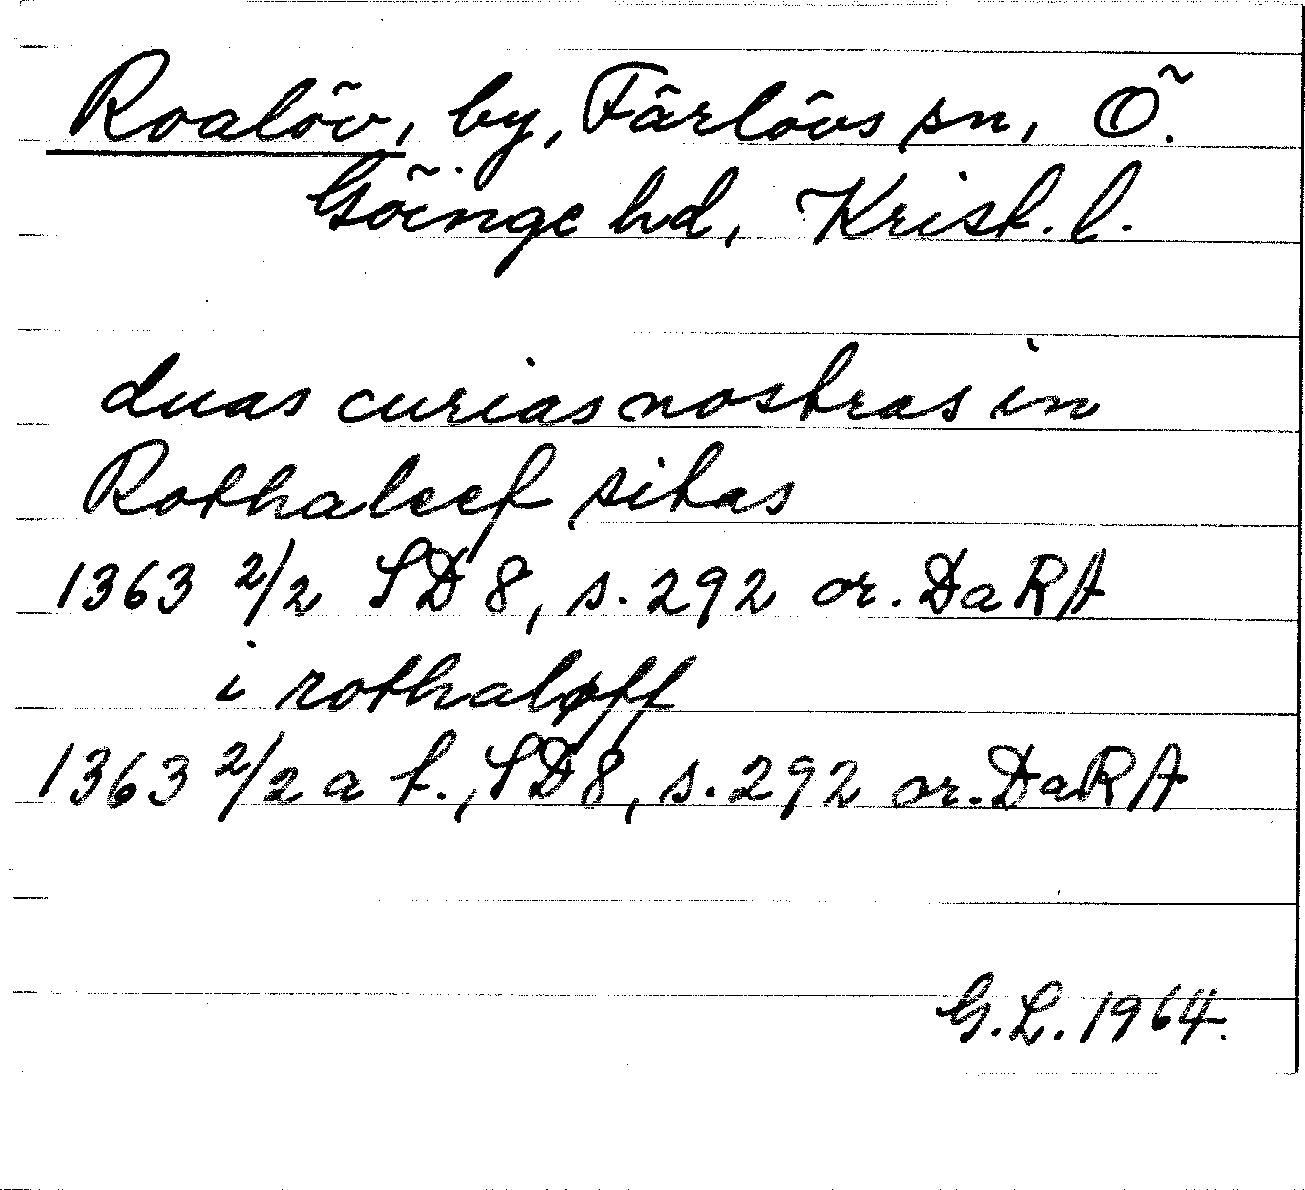 Roalöv, by, Färlövs sn, Ö.
Göinge hd, Krist. l.
duas curias nostras in
Rothaleef sitas
1363 2/2 SD 8, s. 292 or. DaRA
i rothaløff
1363 2/2 a t., SD 8, s. 292 or. DaRA
G.L. 1964.